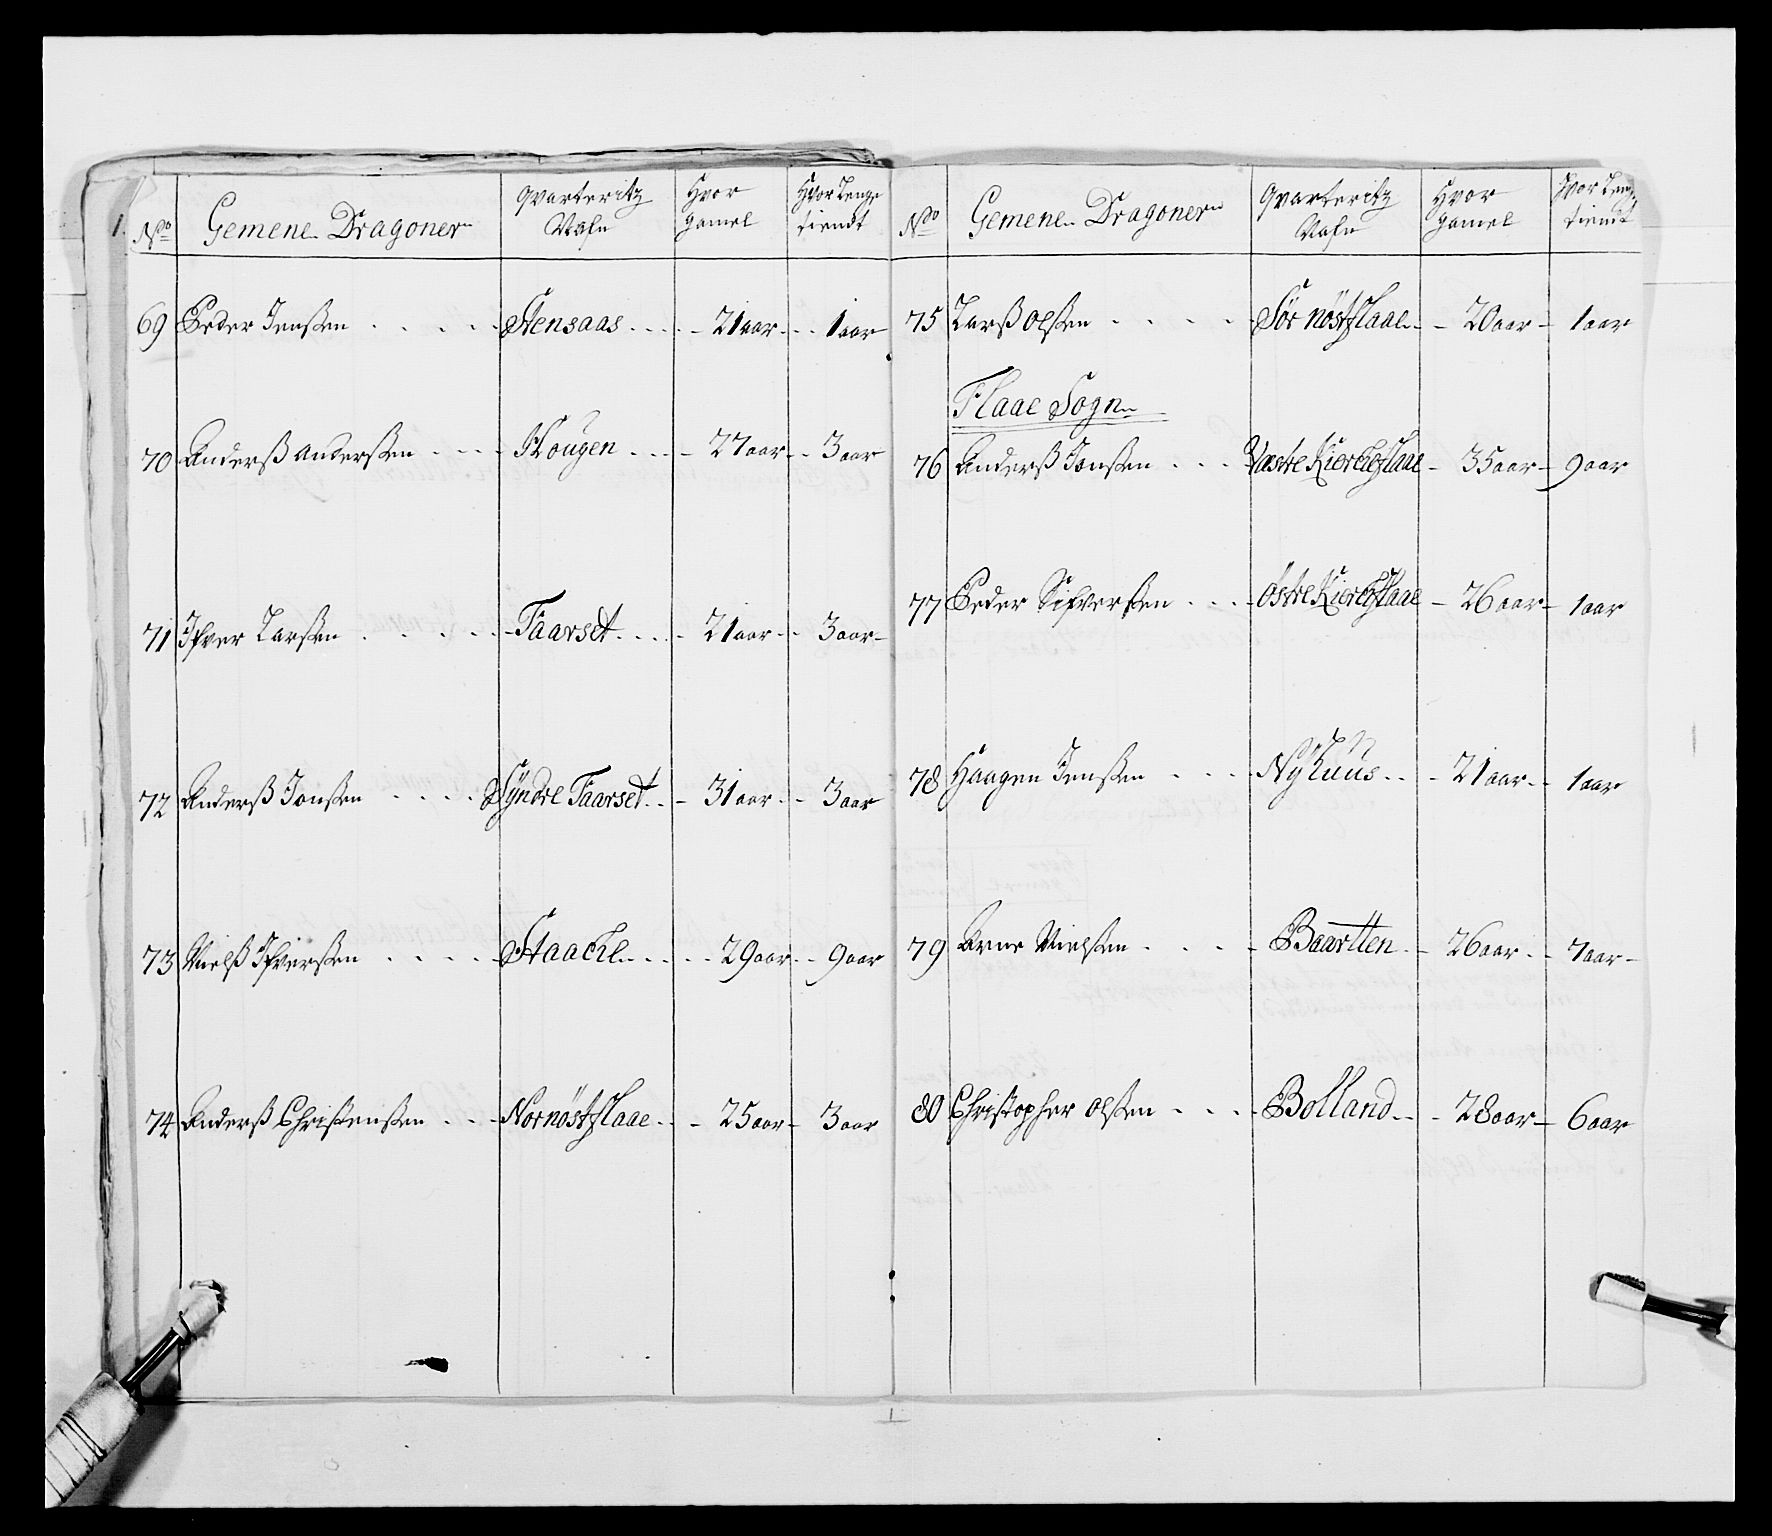 No Gemene Dragoner Qvarteritz Nafn Hvor gamel Hvor lenge tiendt
69 Peder Jenßen Stensaas 21 aar 1 aar
70 Anderß Anderßen Hougen 27 aar 3 aar
71 Ifver Larßen Faarset 21 aar 3 aar
72 Anderß Jonßen Syndre Faarset 31 aar 3 aar
73 Nielß Ifverßen Staache 29 aar 9 aar
74 Anderß Christenßen Nornöstflaae 25 aar 3 aar
No Gemene Dragoner Qvarteritz Nafn Hvor gamel Hvor lenge tiendt
75 Larß Olßen Sör nöstflaae 20 aar 1 aar
Flaae Sogn
76 Anderß Jonßen Væstre Kierchflaae 35 aar 9 aar
77 Peder Sifverßen Östre Kierchflaae 26 aar 1 aar
78 Haagen Jenßen Nyhuus 21 aar 1 aar
79 Arne Nielßen Baartten 26 aar 7 aar
80 Christopher Olßen Bolland 28 aar 6 aar